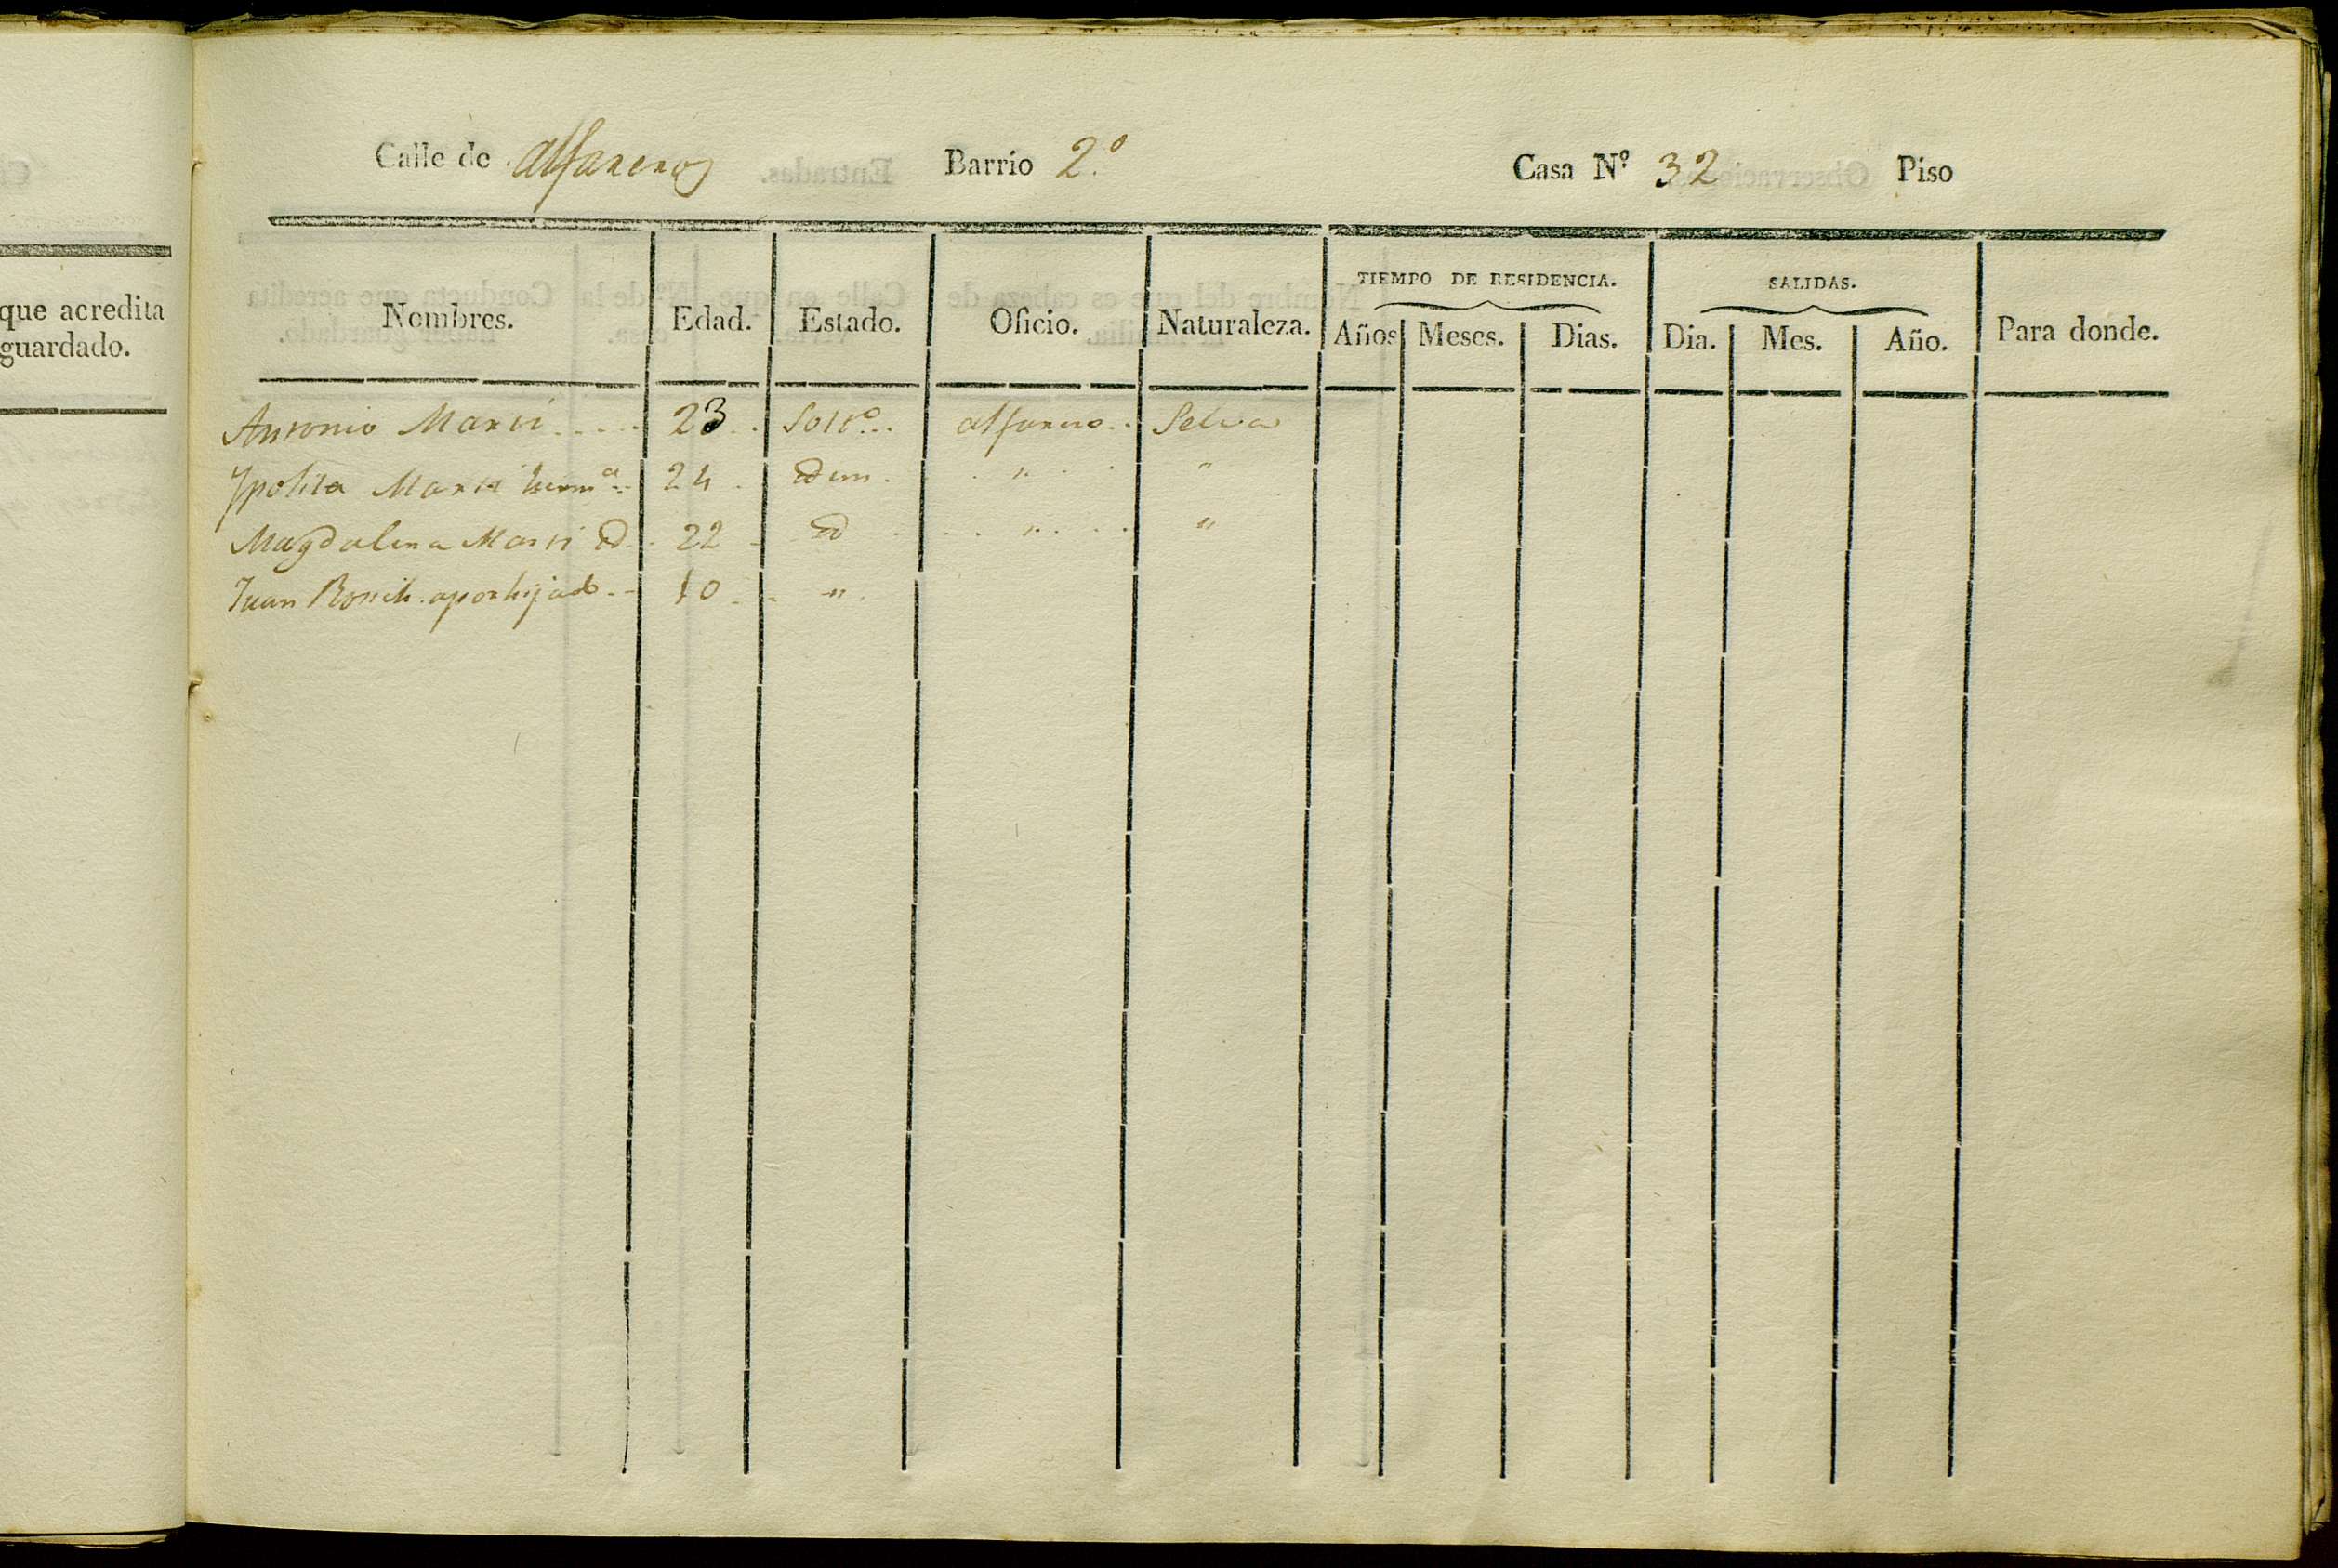 Calle de Alfareros Barrio 2.º Casa Nº 32 Piso
TIEMPO DE RESIDENCIA. SALIDAS.
Nombres. Edad. Estado. Oficio. Naturaleza. Años Meses. Dias. Dia. Mes. Año. Para donde.
Antonio Marti 23 Solt.º alfarero Selva
Ypolita Marti herm.ª 24 Idem " "
Magdalena Marti Id 22 Id " "
Juan Bosch aporhijado 10 "
que acredita
guardado.